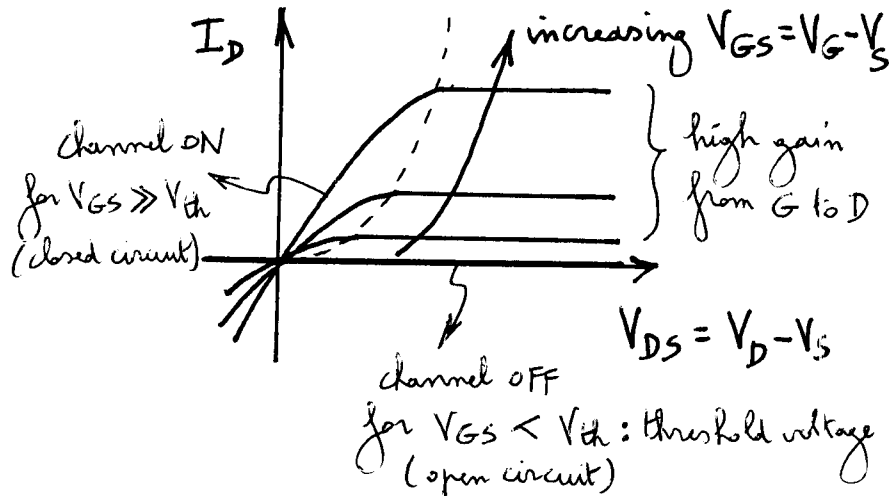 I_D
increasing V_GS = V_G - V_S
channel ON
for V_GS ≫ V_th
(closed circuit)
high gain
from G to D
V_DS = V_D - V_S
channel OFF
for V_GS < V_th : threshold voltage
(open circuit)